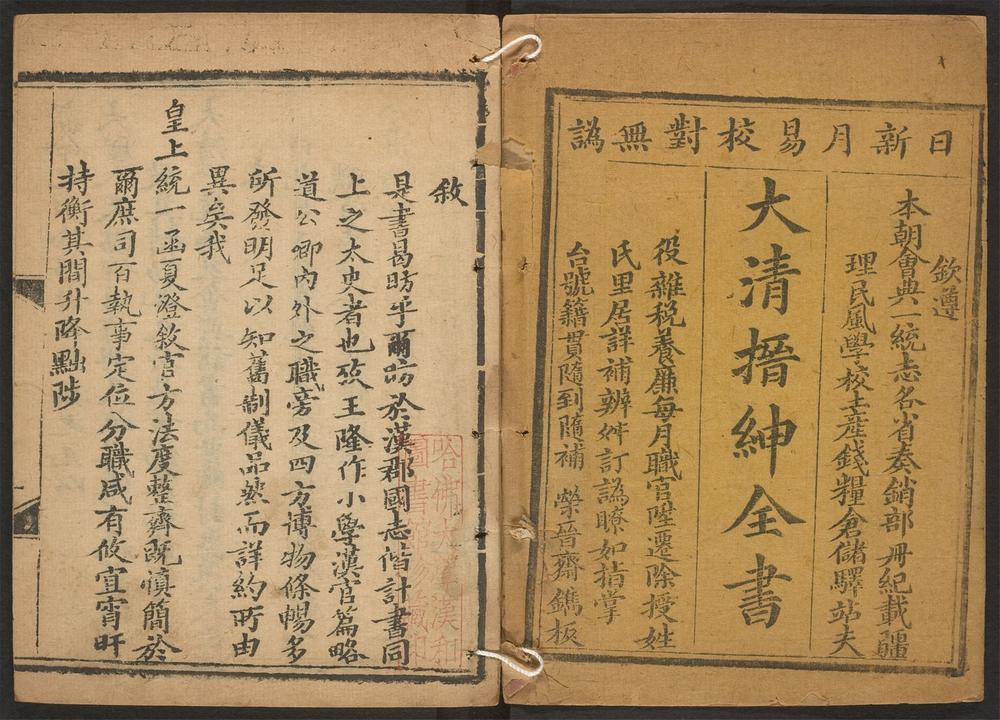 日新月易校對無譌
欽遵
本朝會典一統志各省奏銷部冊紀載疆
理民風學校土產錢糧倉儲驛站夫
大清搢紳全書
役雜稅養廉每月職官陞遷除授姓
氏里居詳補辨舛訂譌瞭如指掌
台號籍貫隨到隨補 榮晉齋鐫板
敘
是書曷昉乎爾昉於漢郡國志偕計書同
上之太史者也迨王隆作小學漢官篇略
道公卿內外之職旁及四方博物條暢多
所發明足以知舊制儀品然而詳約所由
異矣我
皇上統一函夏澄敘官方法度整齊既慎簡於
爾庶司百執事定位分職咸有攸宜宵旰
持衡其間升降黜陟
哈佛大學漢和
圖書館藏印